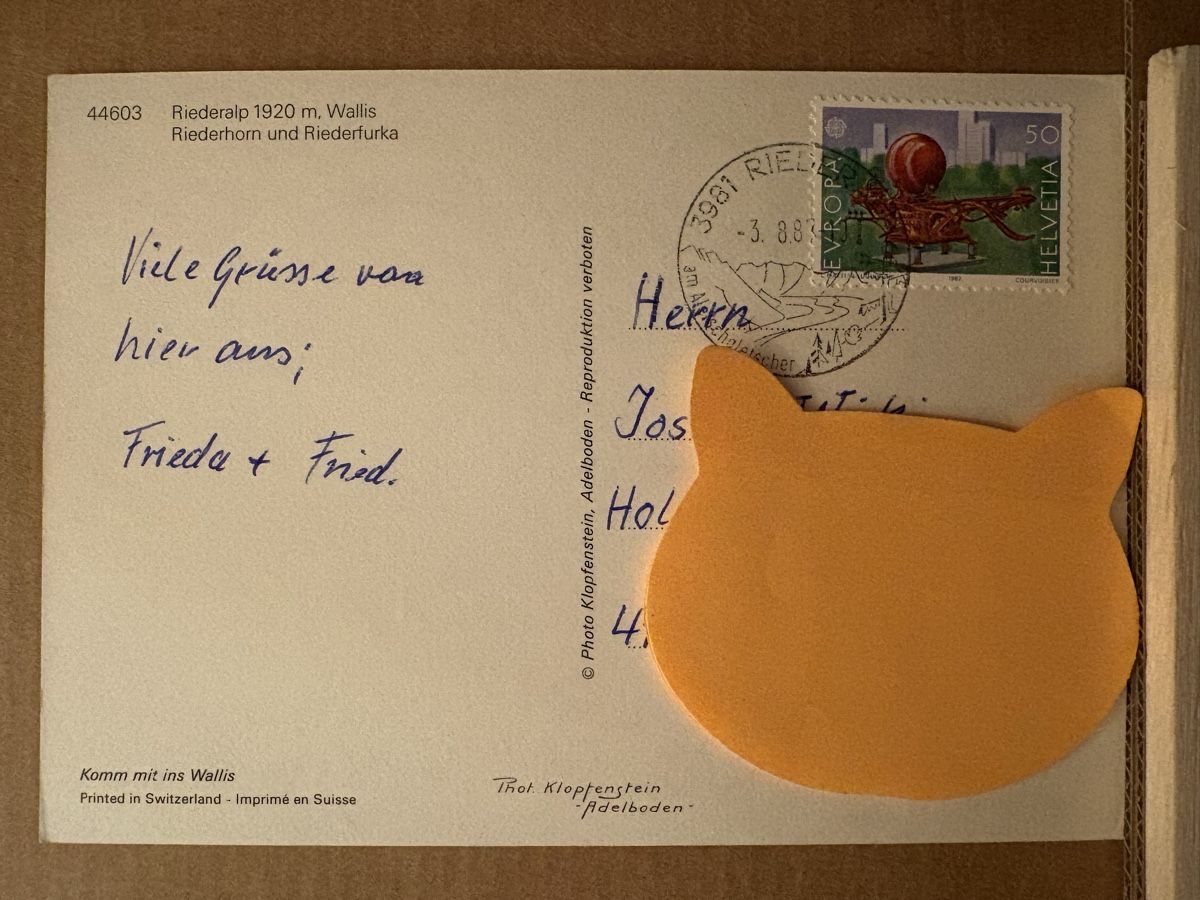 44603 Riederalp 1920 m, Wallis
Riederhorn und Riederfurka
Viele Grüsse von
hier aus;
Frieda + Fried.
Komm mit ins Wallis
Printed in Switzerland - Imprimé en Suisse
© Photo Klopfenstein, Adelboden - Reproduktion verboten
Phot. Klopfenstein
-Adelboden-
3981 RIEDER
-3. 8.87
am Aletschgletscher
EVROPA
50
HELVETIA
1987
COURVOISIER
Herrn
Jos
Hol